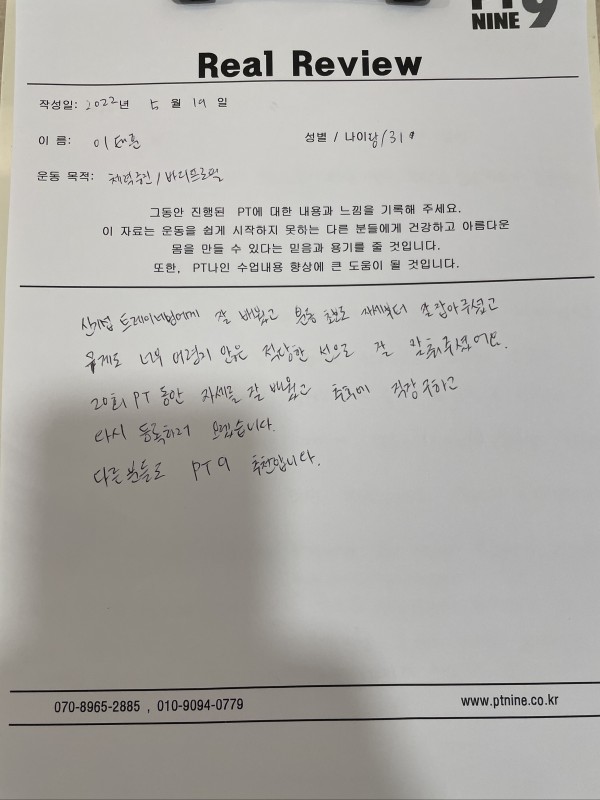 PT
NINE 9
Real Review
작성일: 2022년 5 월 19 일
이 름: 이태훈 성별 / 나이 남/31
운동 목적: 체력증진/바디프로필
그동안 진행된 PT에 대한 내용과 느낌을 기록해 주세요.
이 자료는 운동을 쉽게 시작하지 못하는 다른 분들에게 건강하고 아름다운
몸을 만들 수 있다는 믿음과 용기를 줄 것입니다.
또한, PT나인 수업내용 향상에 큰 도움이 될 것입니다.
트레이너님에게 잘 배웠고 운동 초보로 자세부터 잘 잡아주셨고
무게도 너무 어렵지 않은 적당한 선으로 잘 맞춰주셨어요.
20회 PT 동안 자세를 잘 배웠고 추후에 직장 구하고
다시 등록하러 오겠습니다.
다른분들도 PT9 추천합니다.
070-8965-2885 , 010-9094-0779 www.ptnine.co.kr